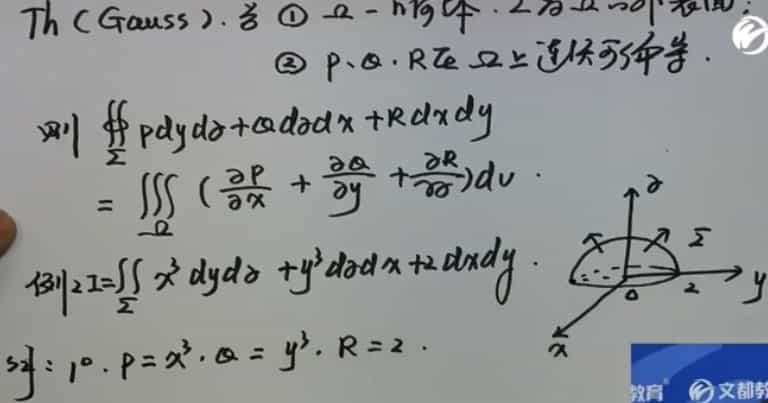 Th (Gauss). 若 ① Ω - 几何体. Σ为Ω的外表面;
② P、Q、R在Ω上连续可偏导.
则 ∯_Σ Pdydz+Qdzdx+Rdxdy
= ∭_Ω (∂P/∂x + ∂Q/∂y + ∂R/∂z)dv.
例2 I=∬_Σ x³dydz+y³dzdx+2dxdy.
解: 1°. P=x³. Q=y³. R=2.
z
Σ
0
2
y
x
教育
文都教